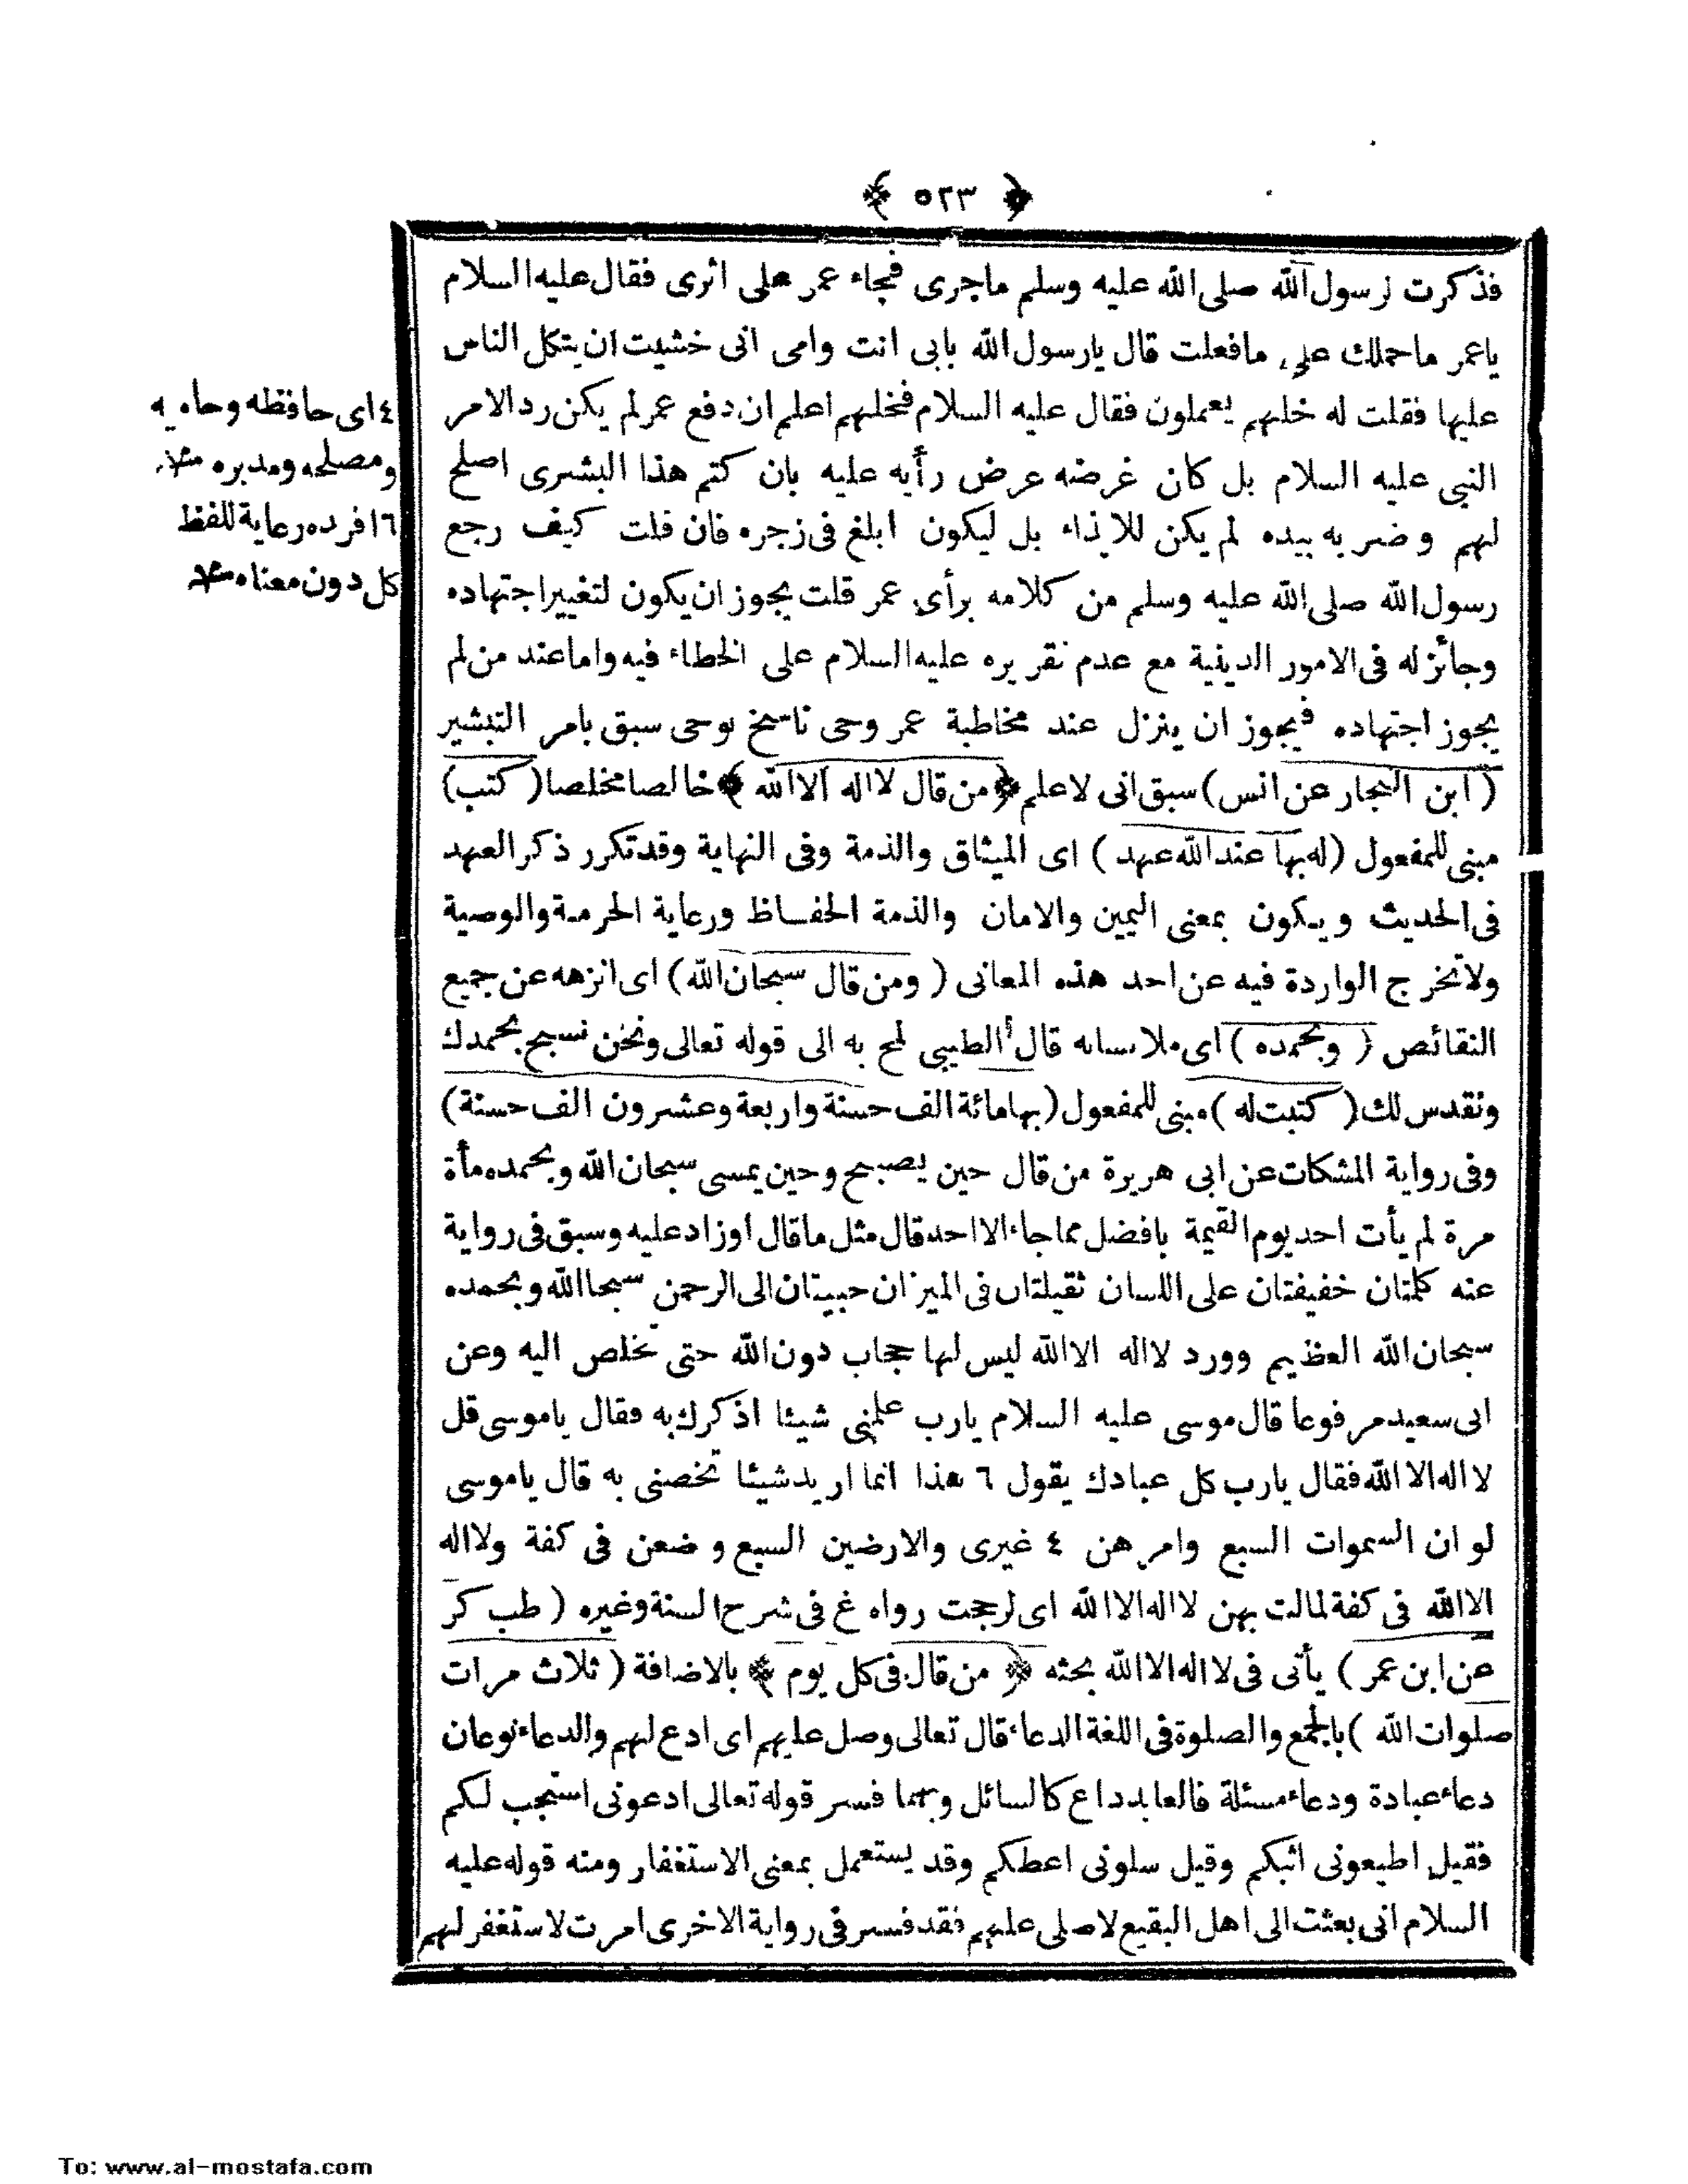 ﴿ ٥٢٣ ﴾
فذكرت لرسول الله صلى الله عليه وسلم ماجرى فجاء عمر على اثرى فقال عليه السلام
ياعمر ماحملك على مافعلت قال يارسول الله بابى انت وامى انى خشيت ان يتكل الناس
عليها فقلت له خلهم يعملون فقال عليه السلام فخلهم اعلم ان دفع عمر لم يكن رد الامر
النبى عليه السلام بل كان غرضه عرض رأيه عليه بان كتم هذا البشرى اصلح
لهم وضربه بيده لم يكن للايذاء بل ليكون ابلغ فى زجره فان قلت كيف رجع
رسول الله صلى الله عليه وسلم من كلامه برأى عمر قلت يجوز ان يكون لتغيير اجتهاده
وجائز له فى الامور الدينية مع عدم تقريره عليه السلام على الخطاء فيه واما عند من لم
يجوز اجتهاده فيجوز ان ينزل عند مخاطبة عمر وحى ناسخ لوحى سبق بامر التبشير
( ابن النجار عن انس) سبق انى لاعلم ﴿ من قال لا اله الا الله ﴾ خالصا مخلصا (كتب)
مبنى للمفعول (له بها عند الله عهد ) اى الميثاق والذمة وفى النهاية وقد تكرر ذكر العهد
فى الحديث ويكون بمعنى اليمين والامان والذمة الحفاظ ورعاية الحرمة والوصية
ولا تخرج الواردة فيه عن احد هذه المعانى ( ومن قال سبحان الله) اى انزهه عن جميع
النقائص ( وبحمده ) اى ملابسا به قال الطيبى لمح به الى قوله تعالى ونحن نسبح بحمدك
ونقدس لك ( كتبت له ) مبنى للمفعول (بها مائة الف حسنة واربعة وعشرون الف حسنة)
وفى رواية المشكات عن ابى هريرة من قال حين يصبح وحين يمسى سبحان الله وبحمده مأة
مرة لم يأت احد يوم القيمة بافضل مما جاء الا احد قال مثل ماقال اوزاد عليه وسبق فى رواية
عنه كلمتان خفيفتان على اللسان ثقيلتان فى الميزان حبيبتان الى الرحمن سبحا الله وبحمده
سبحان الله العظيم وورد لا اله الا الله ليس لها حجاب دون الله حتى تخلص اليه وعن
ابى سعيد مرفوعا قال موسى عليه السلام يارب علمنى شيئا اذكرك به فقال ياموسى قل
لا اله الا الله فقال يارب كل عبادك يقول ٦ هذا انما اريد شيئا تخصنى به قال ياموسى
لو ان السموات السبع وامرهن ٤ غيرى والارضين السبع وضعن فى كفة ولا اله
الا الله فى كفة لمالت بهن لا اله الا الله اى لرجحت رواه غ فى شرح السنة وغيره ( طب كر
عن ابن عمر ) يأتى فى لا اله الا الله بحثه ﴿ من قال فى كل يوم ﴾ بالاضافة ( ثلاث مرات
صلوات الله ) بالجمع والصلوة فى اللغة الدعاء قال تعالى وصل عليهم اى ادع لهم والدعاء نوعان
دعاء عبادة ودعاء مسئلة فالعابد داع كالسائل وبهما فسر قوله تعالى ادعونى استجب لكم
فقيل اطيعونى اثبكم وقيل سلونى اعطكم وقد يستعمل بمعنى الاستغفار ومنه قوله عليه
السلام انى بعثت الى اهل البقيع لاصلى عليهم فقد فسر فى رواية الاخرى امرت لاستغفر لهم
٤ اى حافظه وحاميه
ومصلحه ومدبره
٦ افرده رعاية للفظ
كل دون معناه
To: www.al-mostafa.com